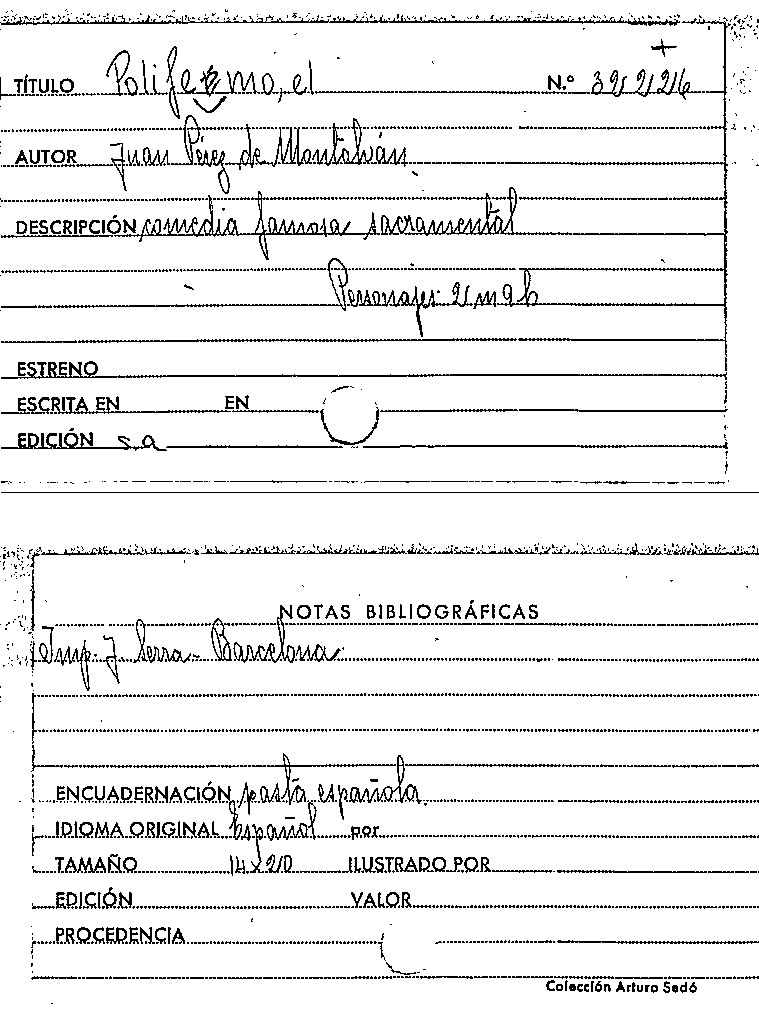 +
TÍTULO Polifemo, el N.º 39226
AUTOR Juan Pérez de Montalván
DESCRIPCIÓN comedia famosa sacramental
Personajes 2 m 9 h
ESTRENO
ESCRITA EN EN
EDICIÓN s.a
NOTAS BIBLIOGRÁFICAS
Imp. J. Serra - Barcelona
ENCUADERNACIÓN pasta española
IDIOMA ORIGINAL Español por
TAMAÑO 14x20 ILUSTRADO POR
EDICIÓN VALOR
PROCEDENCIA
Colección Arturo Sedó